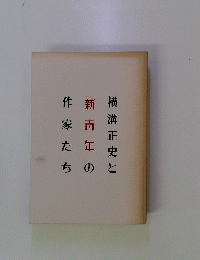 横溝正史と
新青年の
作家たち